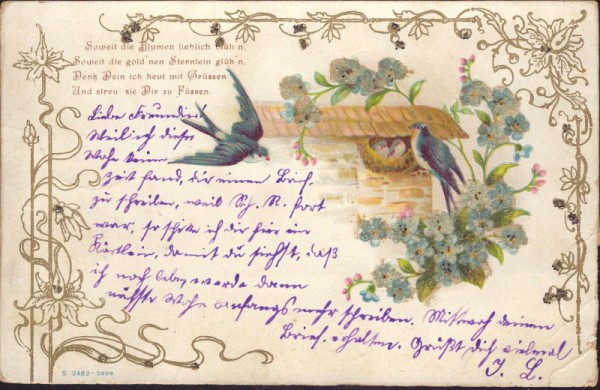 Soweit die Blumen lieblich blüh'n,
Soweit die gold'nen Sternlein glüh'n
Denk Dein ich heut mit Grüssen
Und streu sie Dir zu Füssen.
Liebe Freundin
Weil ich diese
Wohe keine
Zeit fand, dir einen Brief,
zu schreiben, weil Sch. N. fort
war, so schikte ich dir hier ein
Kärtlein, damit du siehst, daß
ich noch lebe, werde dann
nächste Wohe anfangs mehr schreiben. Mitwoch deinen
Brief erhalten. Grüßt dich vielmal
J. L.
S 2482-2494